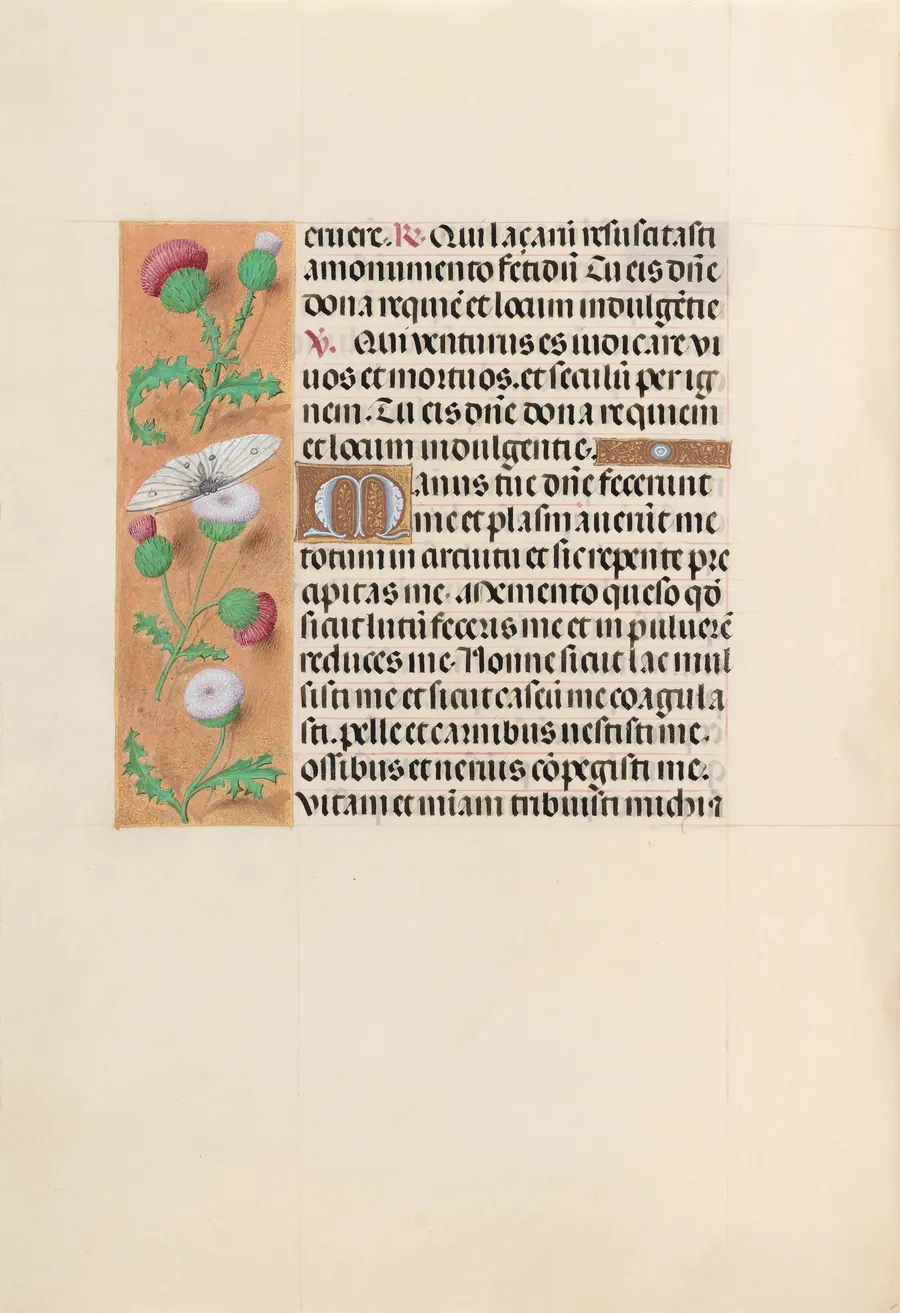 eruere. R. Qui laȝarū resuscitasti
a monumento fetidū Tu eis dn̄e
dona requiē et locum indulgētie
V. Qui venturus es iudicare vi
uos et mortuos. et seculū per ig
nem. Tu eis dn̄e dona requiem
et locum indulgentie.
Manus tue dn̄e fecerunt
me et plasmauerūt me
totum in circuitu et sic repente pre
cipitas me. Memento queso qd̄
sicut lutū feceris me et in puluerē
reduces me. Nonne sicut lac mul
sisti me et sicut caseū me coagula
sti. pelle et carnibus uestisti me.
ossibus et neruis cōpegisti me.
vitam et mīam tribuisti michi ⁊